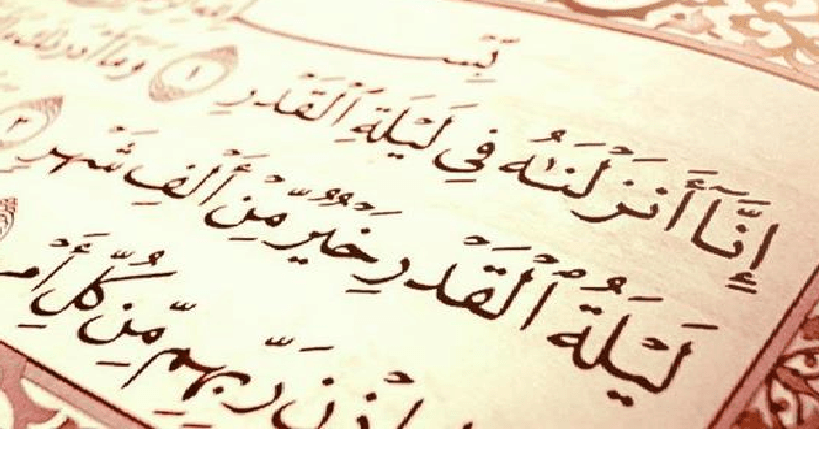 بِسْـ
إِنَّآ أَنزَلْنَٰهُ فِى لَيْلَةِ ٱلْقَدْرِ ١ وَمَآ أَدْرَىٰكَ
لَيْلَةُ ٱلْقَدْرِ خَيْرٌ مِّنْ أَلْفِ شَهْرٍ ٣
إِذْنِ رَبِّهِم مِّن كُلِّ أَمْـ